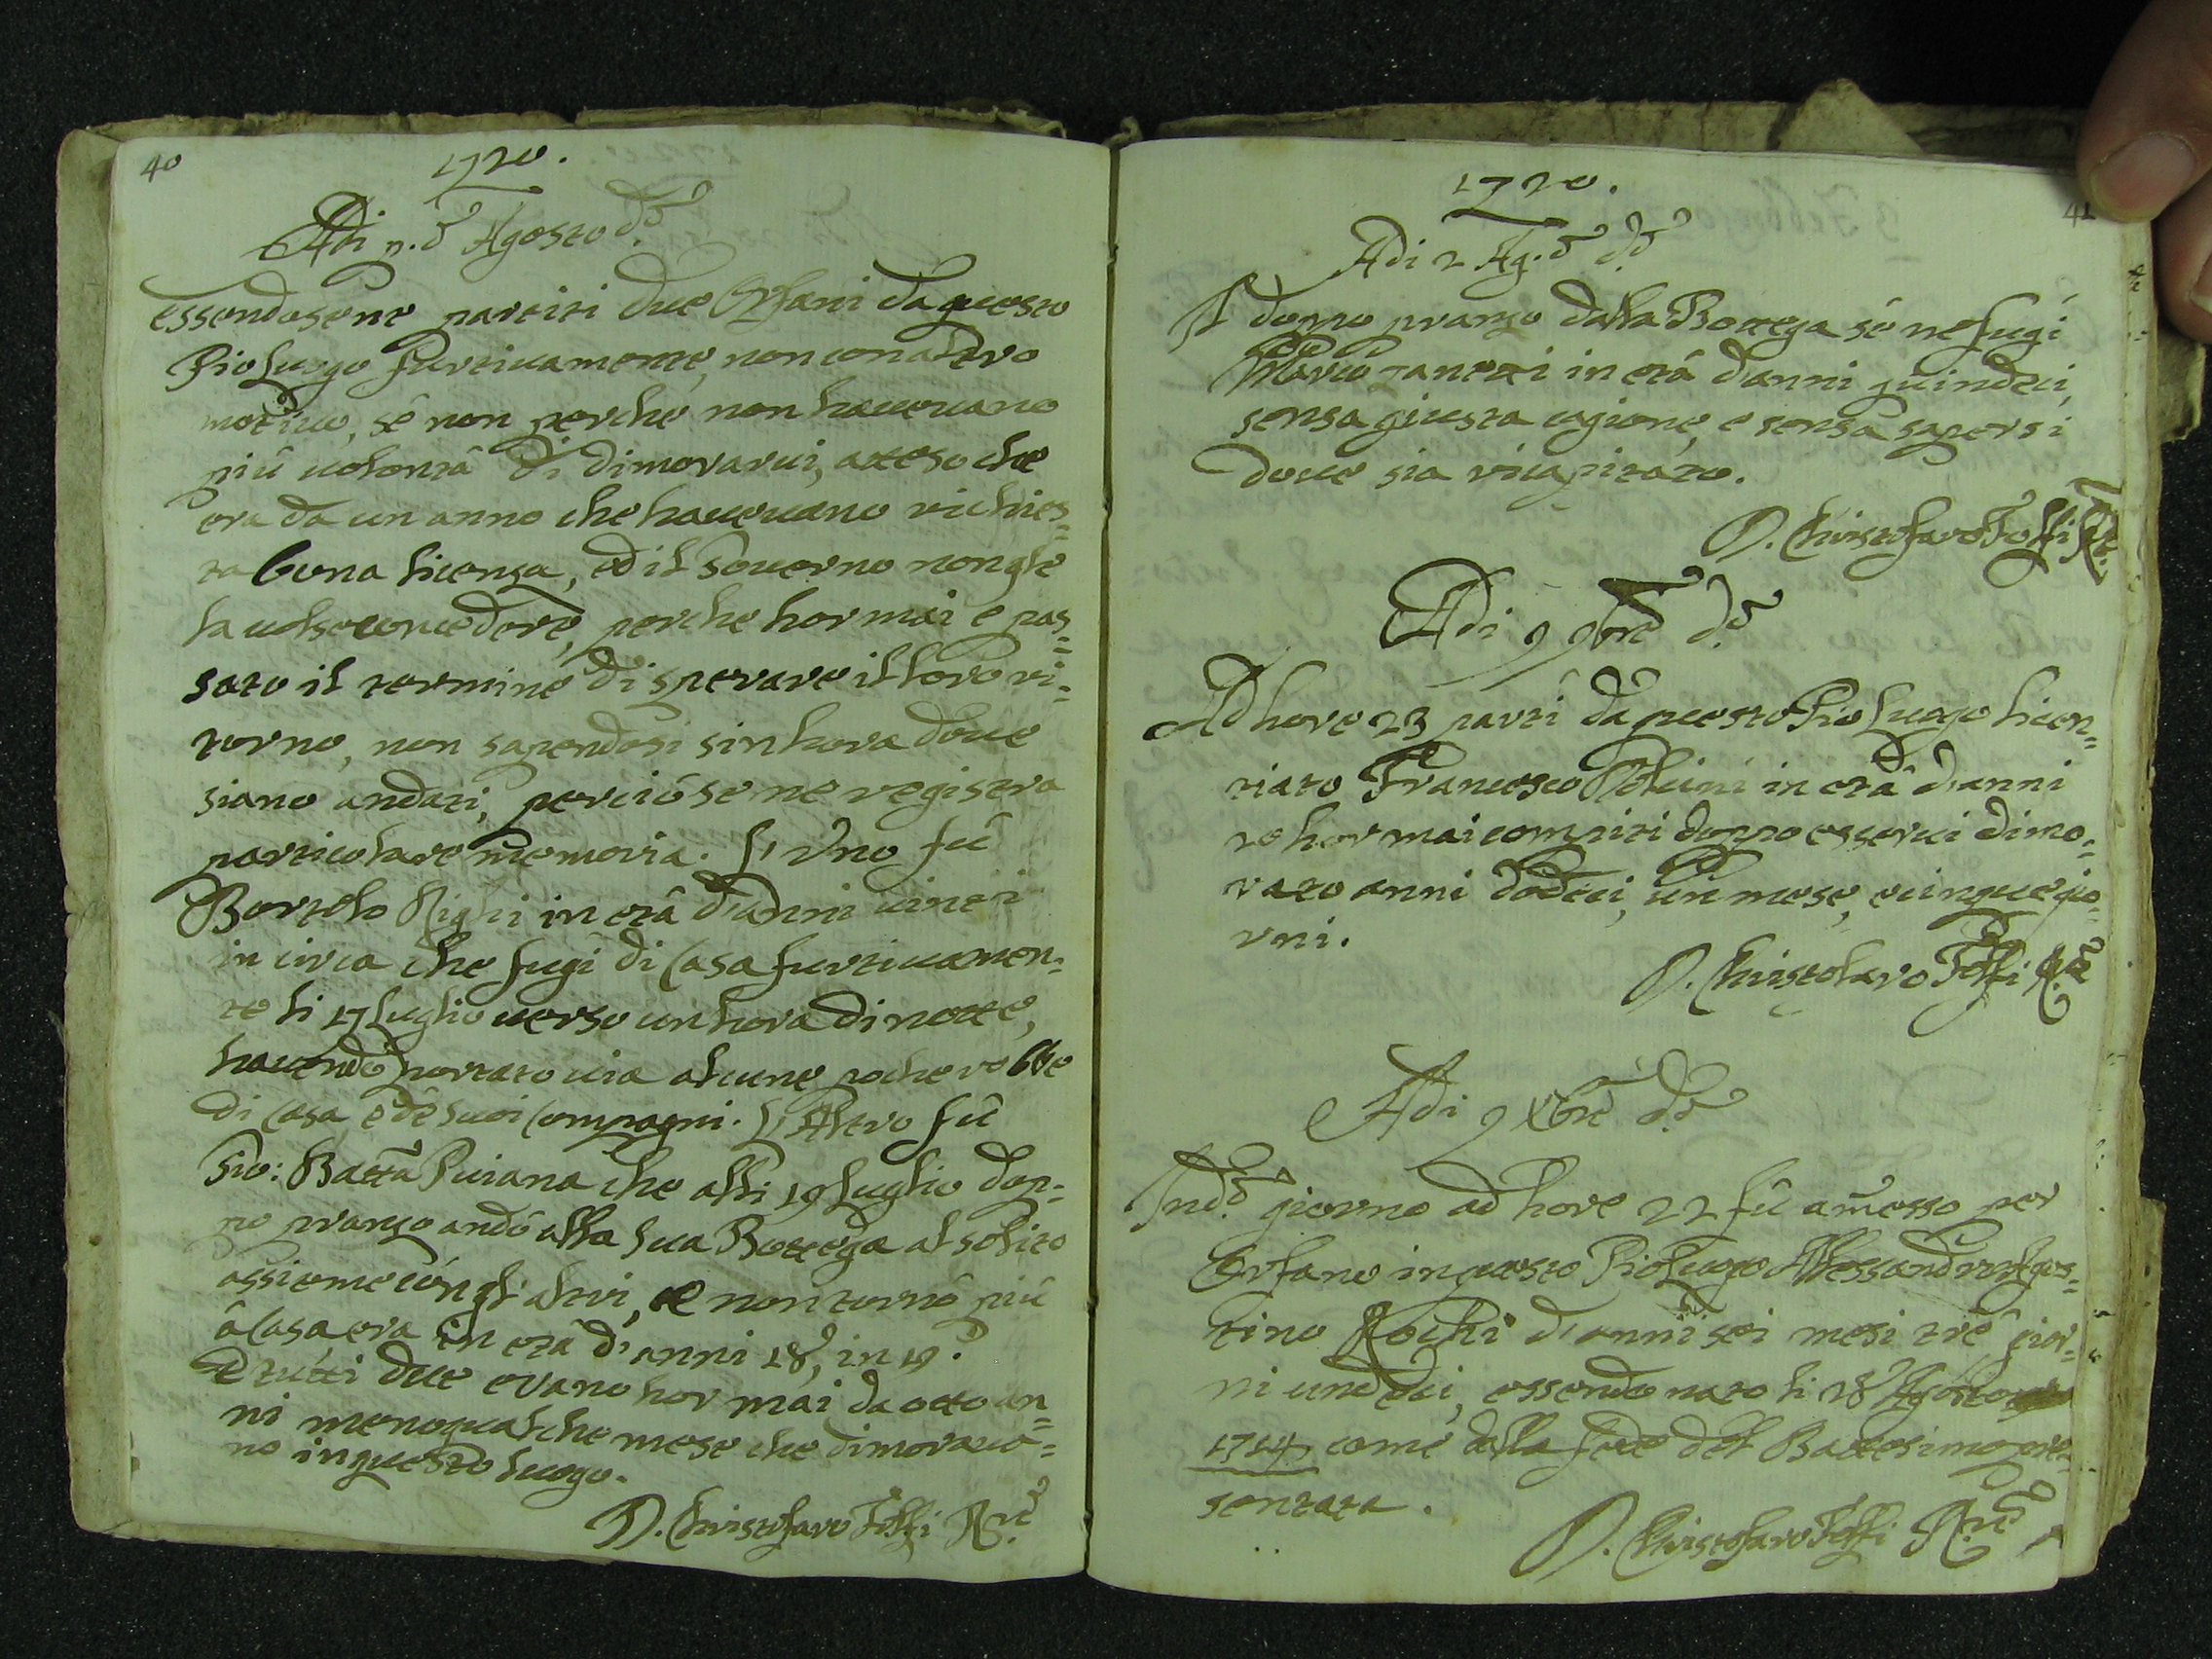 40
1720.
Adi p.º Agosto d.º
essendosene partiti due Orfani da questo
Pio Luogo furtivamente, non con altro
motivo, sê non perchê non havevano
più volontà di dimorarvi, atteso che
era da un anno che havevano richies=
ta buona licenza, ed il Governo non gle
la volse concedere, perche hormai e pas=
sato il termine di sperare il loro ri=
torno, non sapendosi sin hora dove
siano andati, perciò se ne registra
particolare memoria. L'Uno fû
Bortolo Righi in età d'anni vinti
in circa che fugì di Casa furtivamen=
te li 17 Luglio verso un hora di notte,
havendo portato via alcune poche robbe
di Casa e de suoi Compagni. L'Altro fû
Gio: Batta Puiana che alli 19 Luglio dop=
po pranzo andò alla sua Bottega al solito
assieme con gl'altri, e non tornò più
à Casa era in età d'anni 18, in 19.
E tutti due erano hor mai da otto an=
ni meno qualche mese che dimorava=
no in questo luogo.
D. Christofaro Tolfi R.re
41
1720.
Adi 2 Ag.º d.º
Il doppo pranzo dalla Bottega sê ne fugì
Marco Zanetti in età d'anni quindeci,
senza giusta cagione, e senza sapersi
dove sia ricapitato.
D. Christofaro Tolfi R.re
Adi 9 9bre d.º
Ad hore 23 partì da questo Pio Luogo licen=
tiato Francesco in età d'anni
hor mai compiti doppo esservi dimo=
rato anni dodeci, un mese, e cinque gio=
rni.
D. Christofaro Tolfi R.re
Adi 9 Xbre d.º
In d.º giorno ad hore 22 fû amesso per
Orfano in questo Pio Luogo Alessandro Agos=
tino Rochi d'anni sei mesi trê gior=
ni undeci, essendo nato li 28 Agosto
1714 come dalla fede del Battesimo pre=
sentata.
D. Christofaro Tolfi R.re